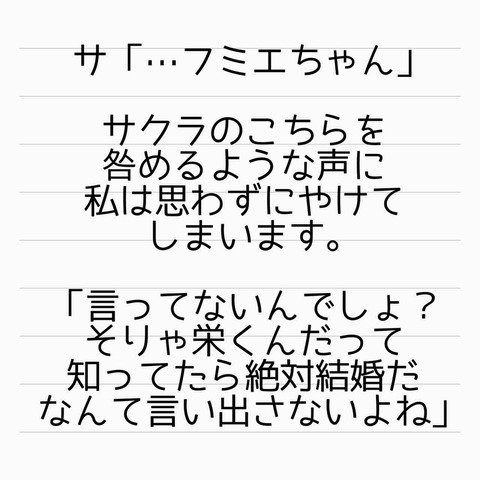 サ「…フミエちゃん」
サクラのこちらを
咎めるような声に
私は思わずにやけて
しまいます。
「言ってないんでしょ?
そりゃ栄くんだって
知ってたら絶対結婚だ
なんて言い出さないよね」